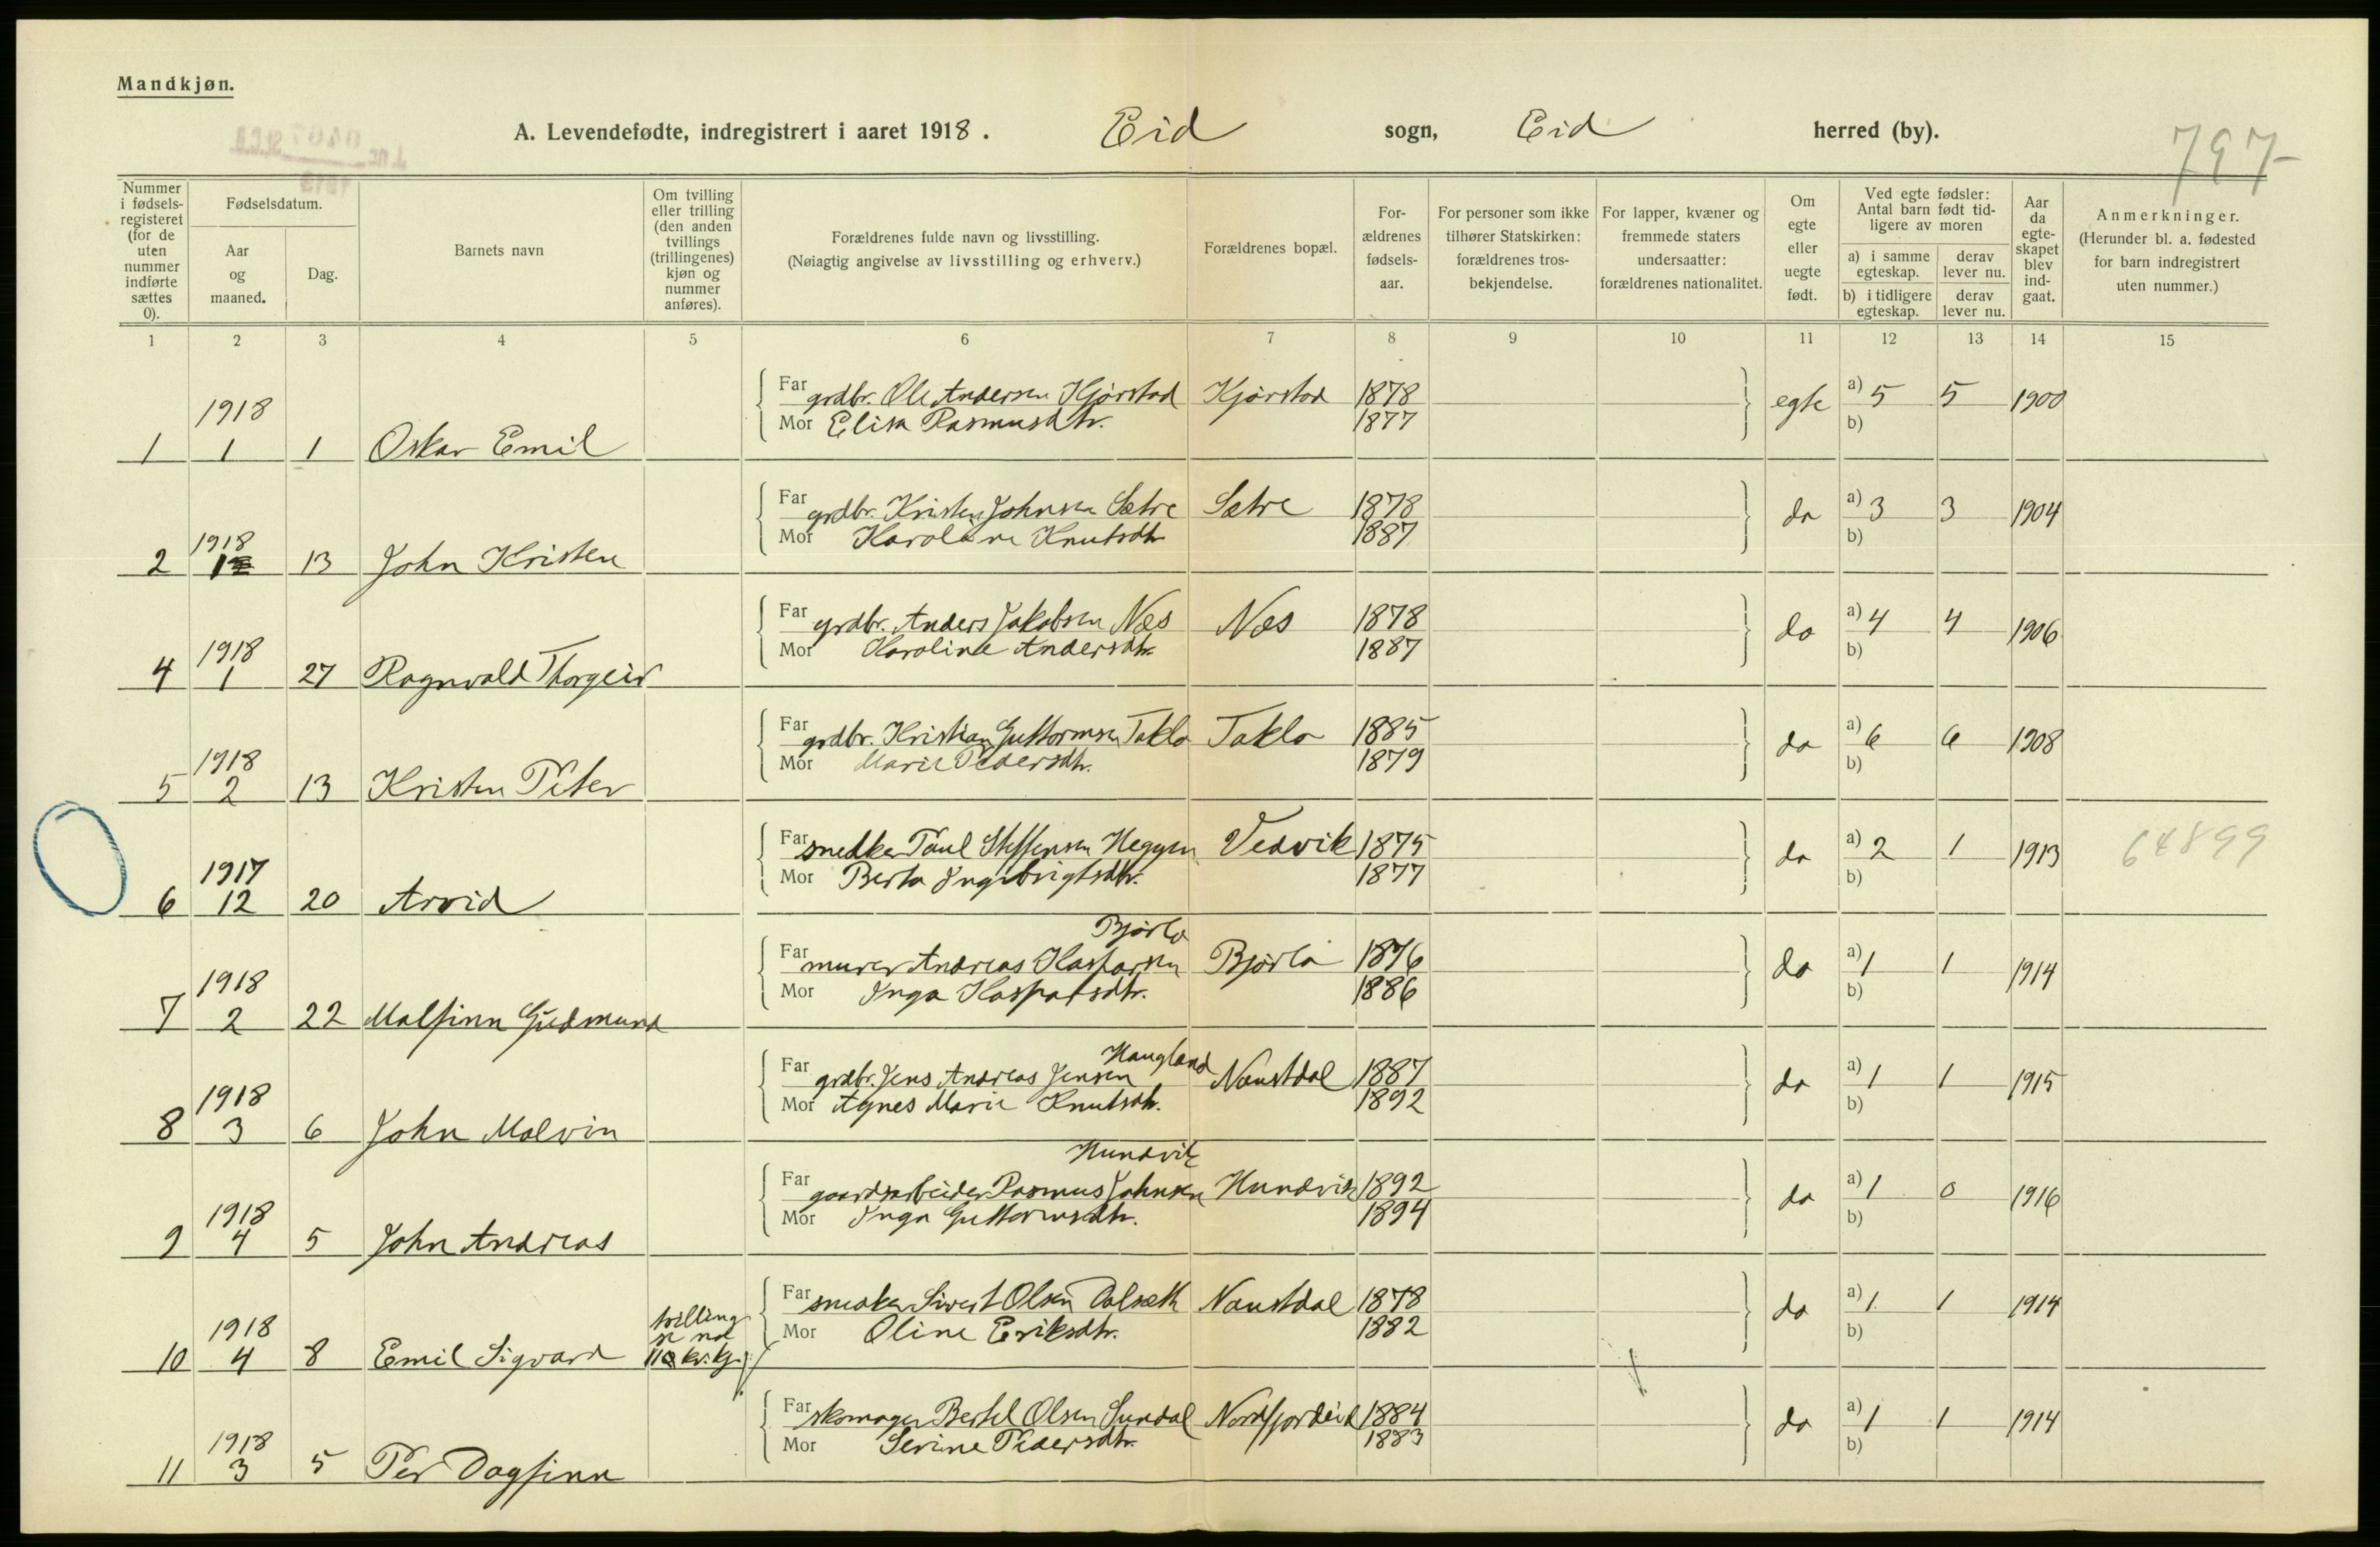 Mandkjøn.
A. Levendefødte, indregistrert i aaret 1918. Eid sogn, Eid herred (by).
797
Nummer i fødselsregisteret (for de uten nummer indførte sættes 0).
Fødselsdatum.
Aar og maaned.
Dag.
Barnets navn
Om tvilling eller trilling (den anden tvillings (trillingenes) kjøn og nummer anføres).
Forældrenes fulde navn og livsstilling.
(Nøiagtig angivelse av livsstilling og erhverv.)
Forældrenes bopæl.
Forældrenes fødselsaar.
For personer som ikke tilhører Statskirken: forældrenes trosbekjendelse.
For lapper, kvæner og fremmede staters undersaatter: forældrenes nationalitet.
Om egte eller uegte født.
Ved egte fødsler: Antal barn født tidligere av moren
a) i samme egteskap.
derav lever nu.
b) i tidligere egteskap.
derav lever nu.
Aar da egteskapet blev indgaat.
Anmerkninger.
(Herunder bl. a. fødested for barn indregistrert uten nummer.)
1 2 3 4 5 6 7 8 9 10 11 12 13 14 15
Far grdbr. Ole Andersen Kjørstad Kjørstad 1878 egte a) 5 5 1900
1918
Mor Elisa Rasmusdtr. 1877 b)
1 1 1 Oskar Emil
Far grdbr. Kristen Johnsen Sætre Sætre 1878 do a) 3 3 1904
Mor Karoline Knutsdtr 1887 b)
1918
2 1 13 John Kristen
Far grdbr. Anders Jakobsen Næs Næs 1878 do a) 4 4 1906
Mor Karoline Andersdtr. 1887 b)
1918
4 1 27 Ragnvald Thorgeir
Far grdbr. Kristian Guttormsen Taklo Taklo 1885 do a) 6 6 1908
Mor Marie Pedersdtr. 1879 b)
1918
5 2 13 Kristen Peter
Far snedker Paul Steffensen Heggen Vedvik 1875 do a) 2 1 1913 64899
Mor Berta Ingebrigtsdtr. 1877 b)
1917
6 12 20 Arvid
Bjørlo
Far murer Andreas Kasparsen Bjørlo 1876 do a) 1 1 1914
Mor Inga Kasparsdtr. 1886 b)
1918
7 2 22 Malfinn Gudmund
Haugland
Far grdbr. Jens Andreas Jensen Naustdal 1887 do a) 1 1 1915
Mor Agnes Marie Knutsdtr. 1892 b)
1918
8 3 6 John Malvin
Hundvik
Far gaardsarbeider Rasmus Johnsen Hundvik 1892 do a) 1 0 1916
Mor Inga Guttormsdtr. 1894 b)
1918
9 4 5 John Andreas
Far snedker Sivert Olsen Dalsæth Naustdal 1878 do a) 1 1 1914
tvilling
Mor Oline Eriksdtr. 1882 b)
1918 se no
10 4 8 Emil Sigvard kv.kj.
Far skomager Bertel Olsen Sundal Nordfjordeid 1884 do a) 1 1 1914
Mor Serine Pedersdtr. 1883 b)
1918
11 3 5 Per Dagfinn